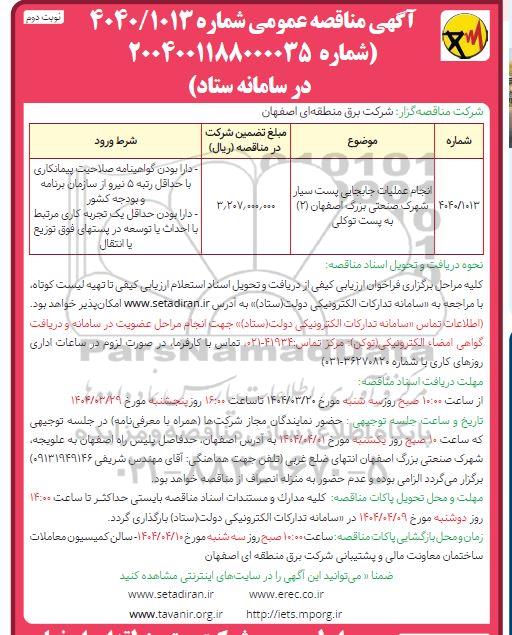 نوبت دوم
آگهی مناقصه عمومی شماره ۴۰۴۰/۱۰۱۳
(شماره ۲۰۰۴۰۰۱۱۸۸۰۰۰۰۳۵
در سامانه ستاد)
شرکت مناقصه‌گزار: شرکت برق منطقه‌ای اصفهان
شماره
موضوع
مبلغ تضمین شرکت در مناقصه (ریال)
شرایط ورود
۴۰۴۰/۱۰۱۳
انجام عملیات جابجایی پست سیار
شهرک صنعتی بزرگ اصفهان (۲)
به پست توکلی
۳,۲۰۷,۰۰۰,۰۰۰
- دارا بودن گواهینامه صلاحیت پیمانکاری
با حداقل رتبه ۵ نیرو از سازمان برنامه
و بودجه کشور
- دارا بودن حداقل یک تجربه کاری مرتبط
با احداث یا توسعه در پستهای فوق توزیع
یا انتقال
نحوه دریافت و تحویل اسناد مناقصه:
کلیه مراحل برگزاری فراخوان ارزیابی کیفی از دریافت و تحویل اسناد استعلام ارزیابی کیفی تا تهیه لیست کوتاه،
با مراجعه به «سامانه تدارکات الکترونیکی دولت(ستاد)» به آدرس www.setadiran.ir امکان‌پذیر خواهد بود.
(اطلاعات تماس «سامانه تدارکات الکترونیکی دولت(ستاد)» جهت انجام مراحل عضویت در سامانه و دریافت
گواهی امضاء الکترونیکی(توکن): مرکز تماس:۴۱۹۳۴-۰۲۱، تماس با کارفرما، در صورت لزوم در ساعات اداری
روزهای کاری با شماره ۳۶۲۷۰۸۲۰-۰۳۱)
مهلت دریافت اسناد مناقصه:
از ساعت ۱۰:۰۰ صبح روز سه شنبه مورخ ۱۴۰۴/۰۳/۲۰ تا ساعت ۱۶:۰۰ روز پنجشنبه مورخ ۱۴۰۴/۰۳/۲۹
تاریخ و ساعت جلسه توجیهی : حضور نمایندگان مجاز شرکت‌ها (همراه با معرفی‌نامه) در جلسه توجیهی
که ساعت ۱۰ صبح روز یکشنبه مورخ ۱۴۰۴/۰۴/۰۱ به آدرس اصفهان، حدفاصل پلیس راه اصفهان به علویجه،
شهرک صنعتی بزرگ اصفهان انتهای ضلع غربی (تلفن جهت هماهنگی: آقای مهندس شریفی ۰۹۱۳۱۹۴۹۱۴۶)
برگزار می‌گردد الزامی بوده و عدم حضور به منزله انصراف از مناقصه خواهد بود.
مهلت و محل تحویل پاکات مناقصه: کلیه مدارک و مستندات اسناد مناقصه بایستی حداکثر تا ساعت ۱۴:۰۰
روز دوشنبه مورخ ۱۴۰۴/۰۴/۰۹ در «سامانه تدارکات الکترونیکی دولت(ستاد) بارگذاری گردد.
زمان و محل بازگشایی پاکات مناقصه: ساعت ۱۰:۰۰ صبح روز سه شنبه مورخ ۱۴۰۴/۰۴/۱۰- سالن کمیسیون معاملات
ساختمان معاونت مالی و پشتیبانی شرکت برق منطقه ای اصفهان
ضمنا « می‌توانید این آگهی را در سایت‌های اینترنتی مشاهده کنید
www.setadiran.ir www.erec.co.ir
www.tavanir.org.ir http://iets.mporg.ir